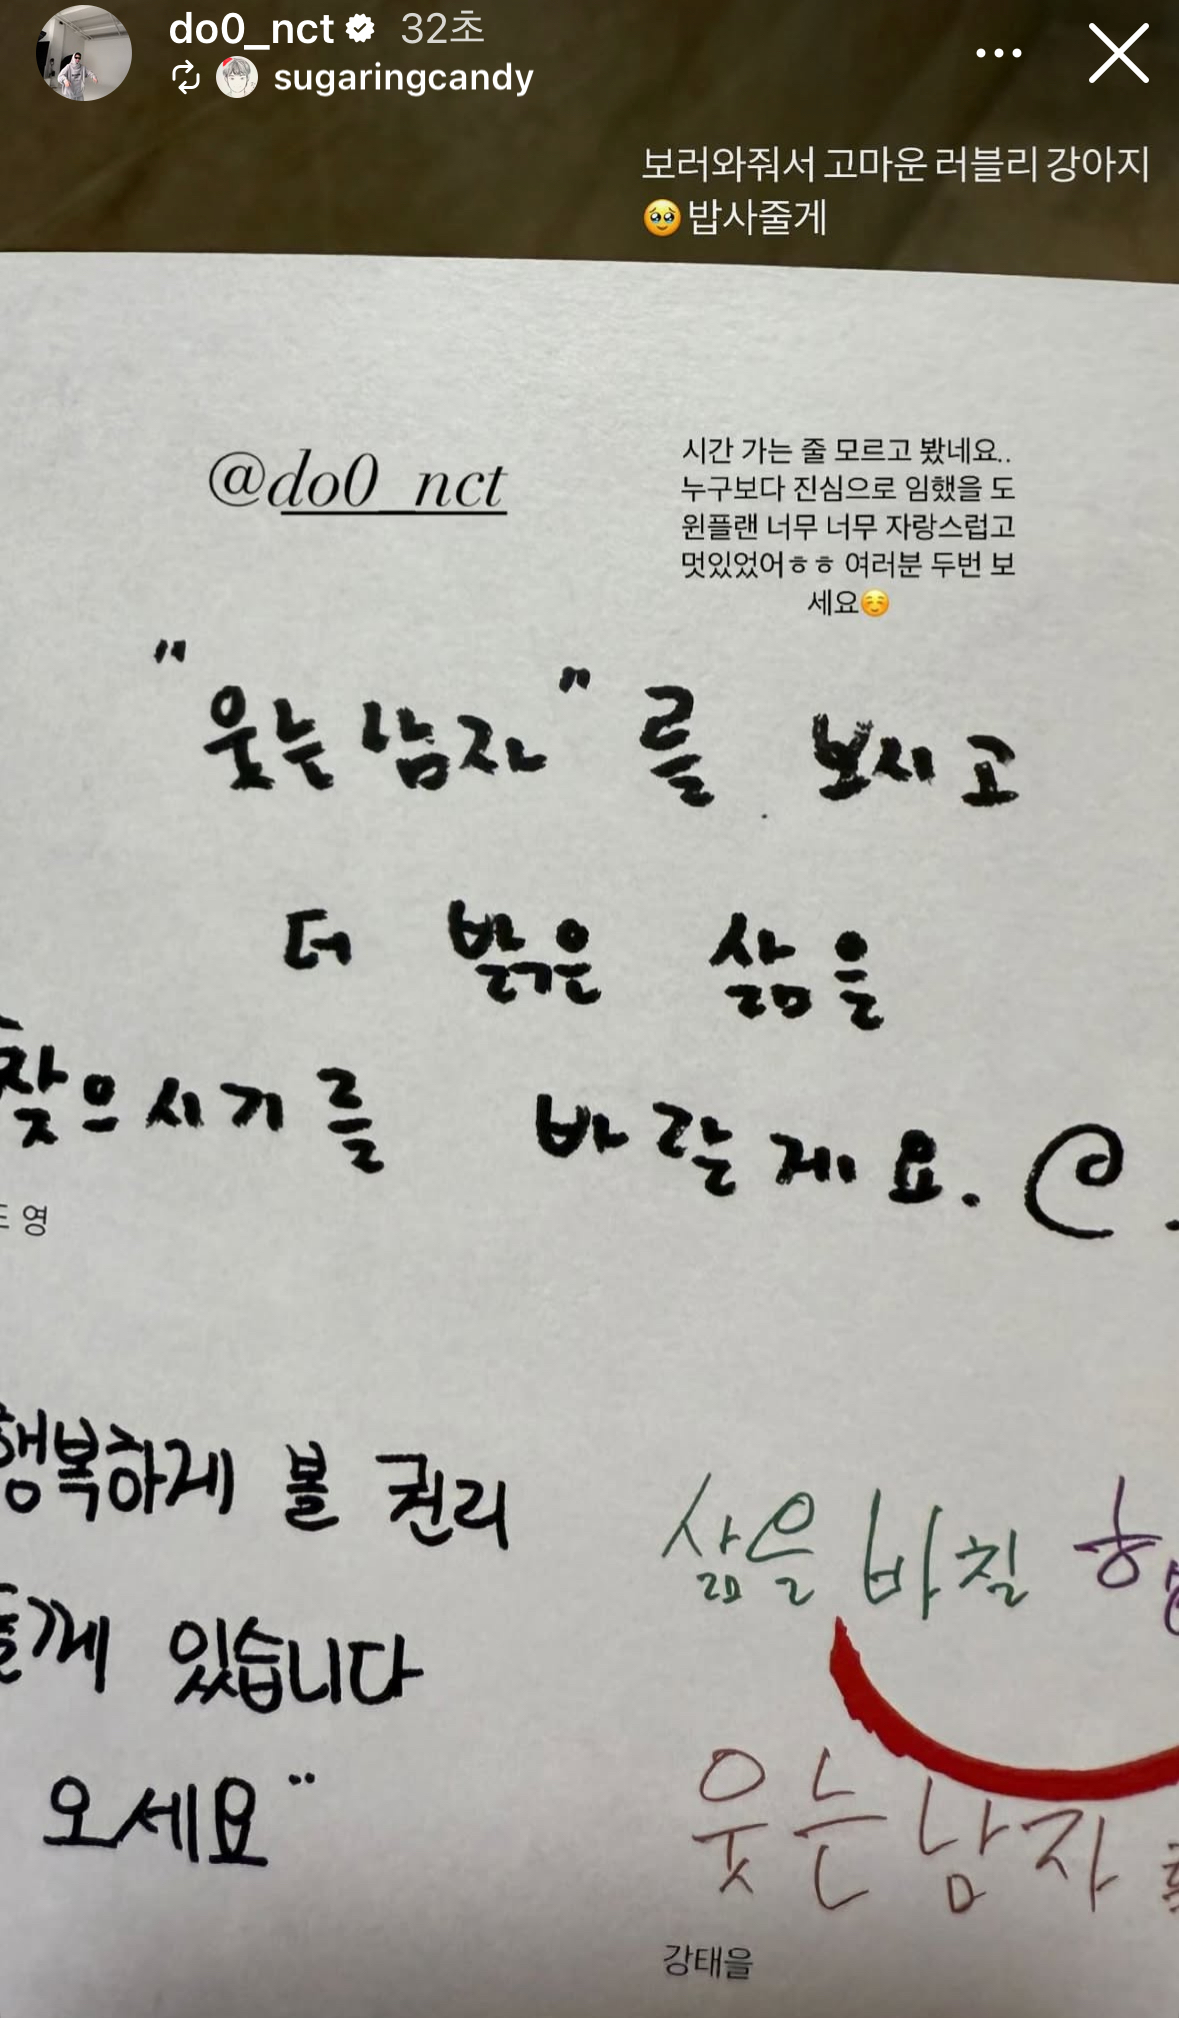 do0_nct 32초
sugaringcandy
보러와줘서 고마운 러블리 강아지
🥹밥사줄게
@do0_nct
시간 가는 줄 모르고 봤네요..
누구보다 진심으로 임했을 도
윈플랜 너무 너무 자랑스럽고
멋있었어ㅎㅎ 여러분 두번 보
세요☺️
"웃는 남자"를 보시고
더 밝은 삶을
찾으시기를 바랄게요.
영
행복하게 볼 권리
있습니다
오세요¨
삶을 바칠
웃는 남자
강태을